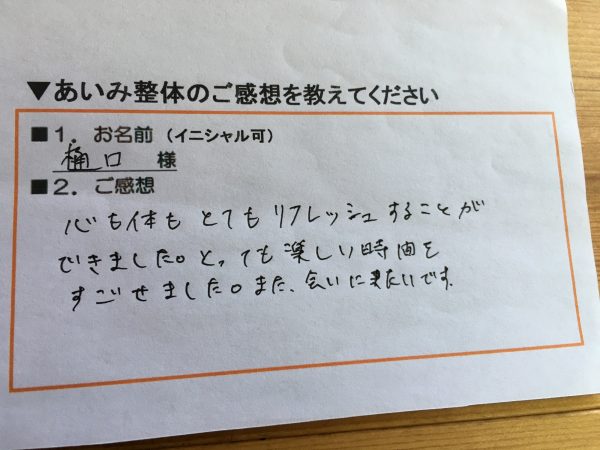 ▼あいみ整体のご感想を教えてください
■1．お名前（イニシャル可）
樋口 様
■2．ご感想
心も体もとてもリフレッシュすることが
できました。とっても楽しい時間を
すごせました。また、会いに来たいです。